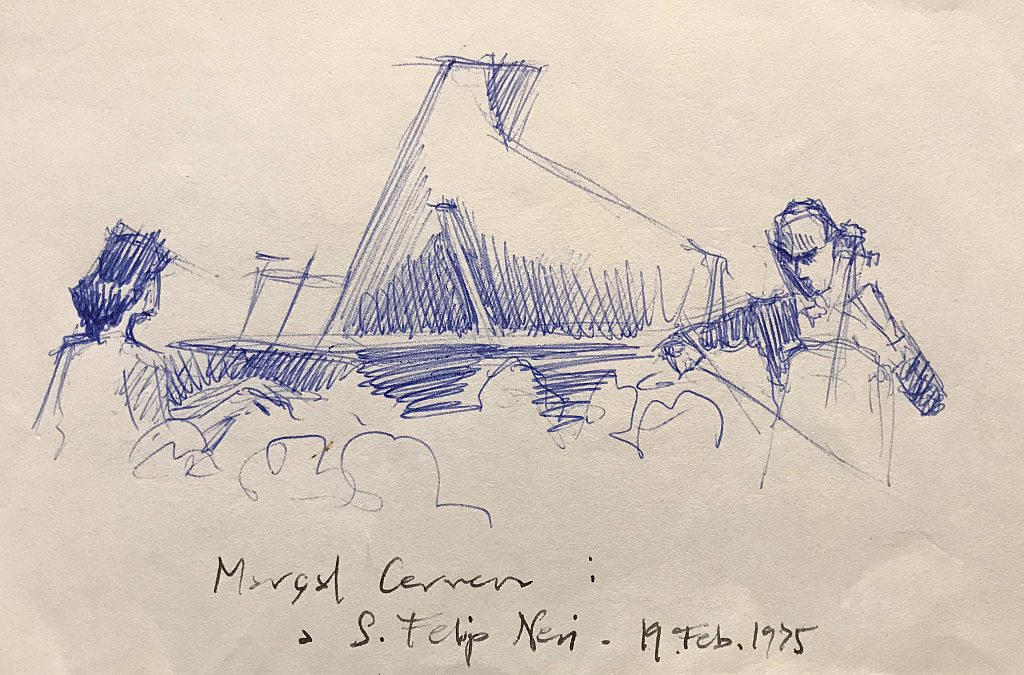 Marçal Cervera :
a S. Felip Neri - 19. Feb. 1975